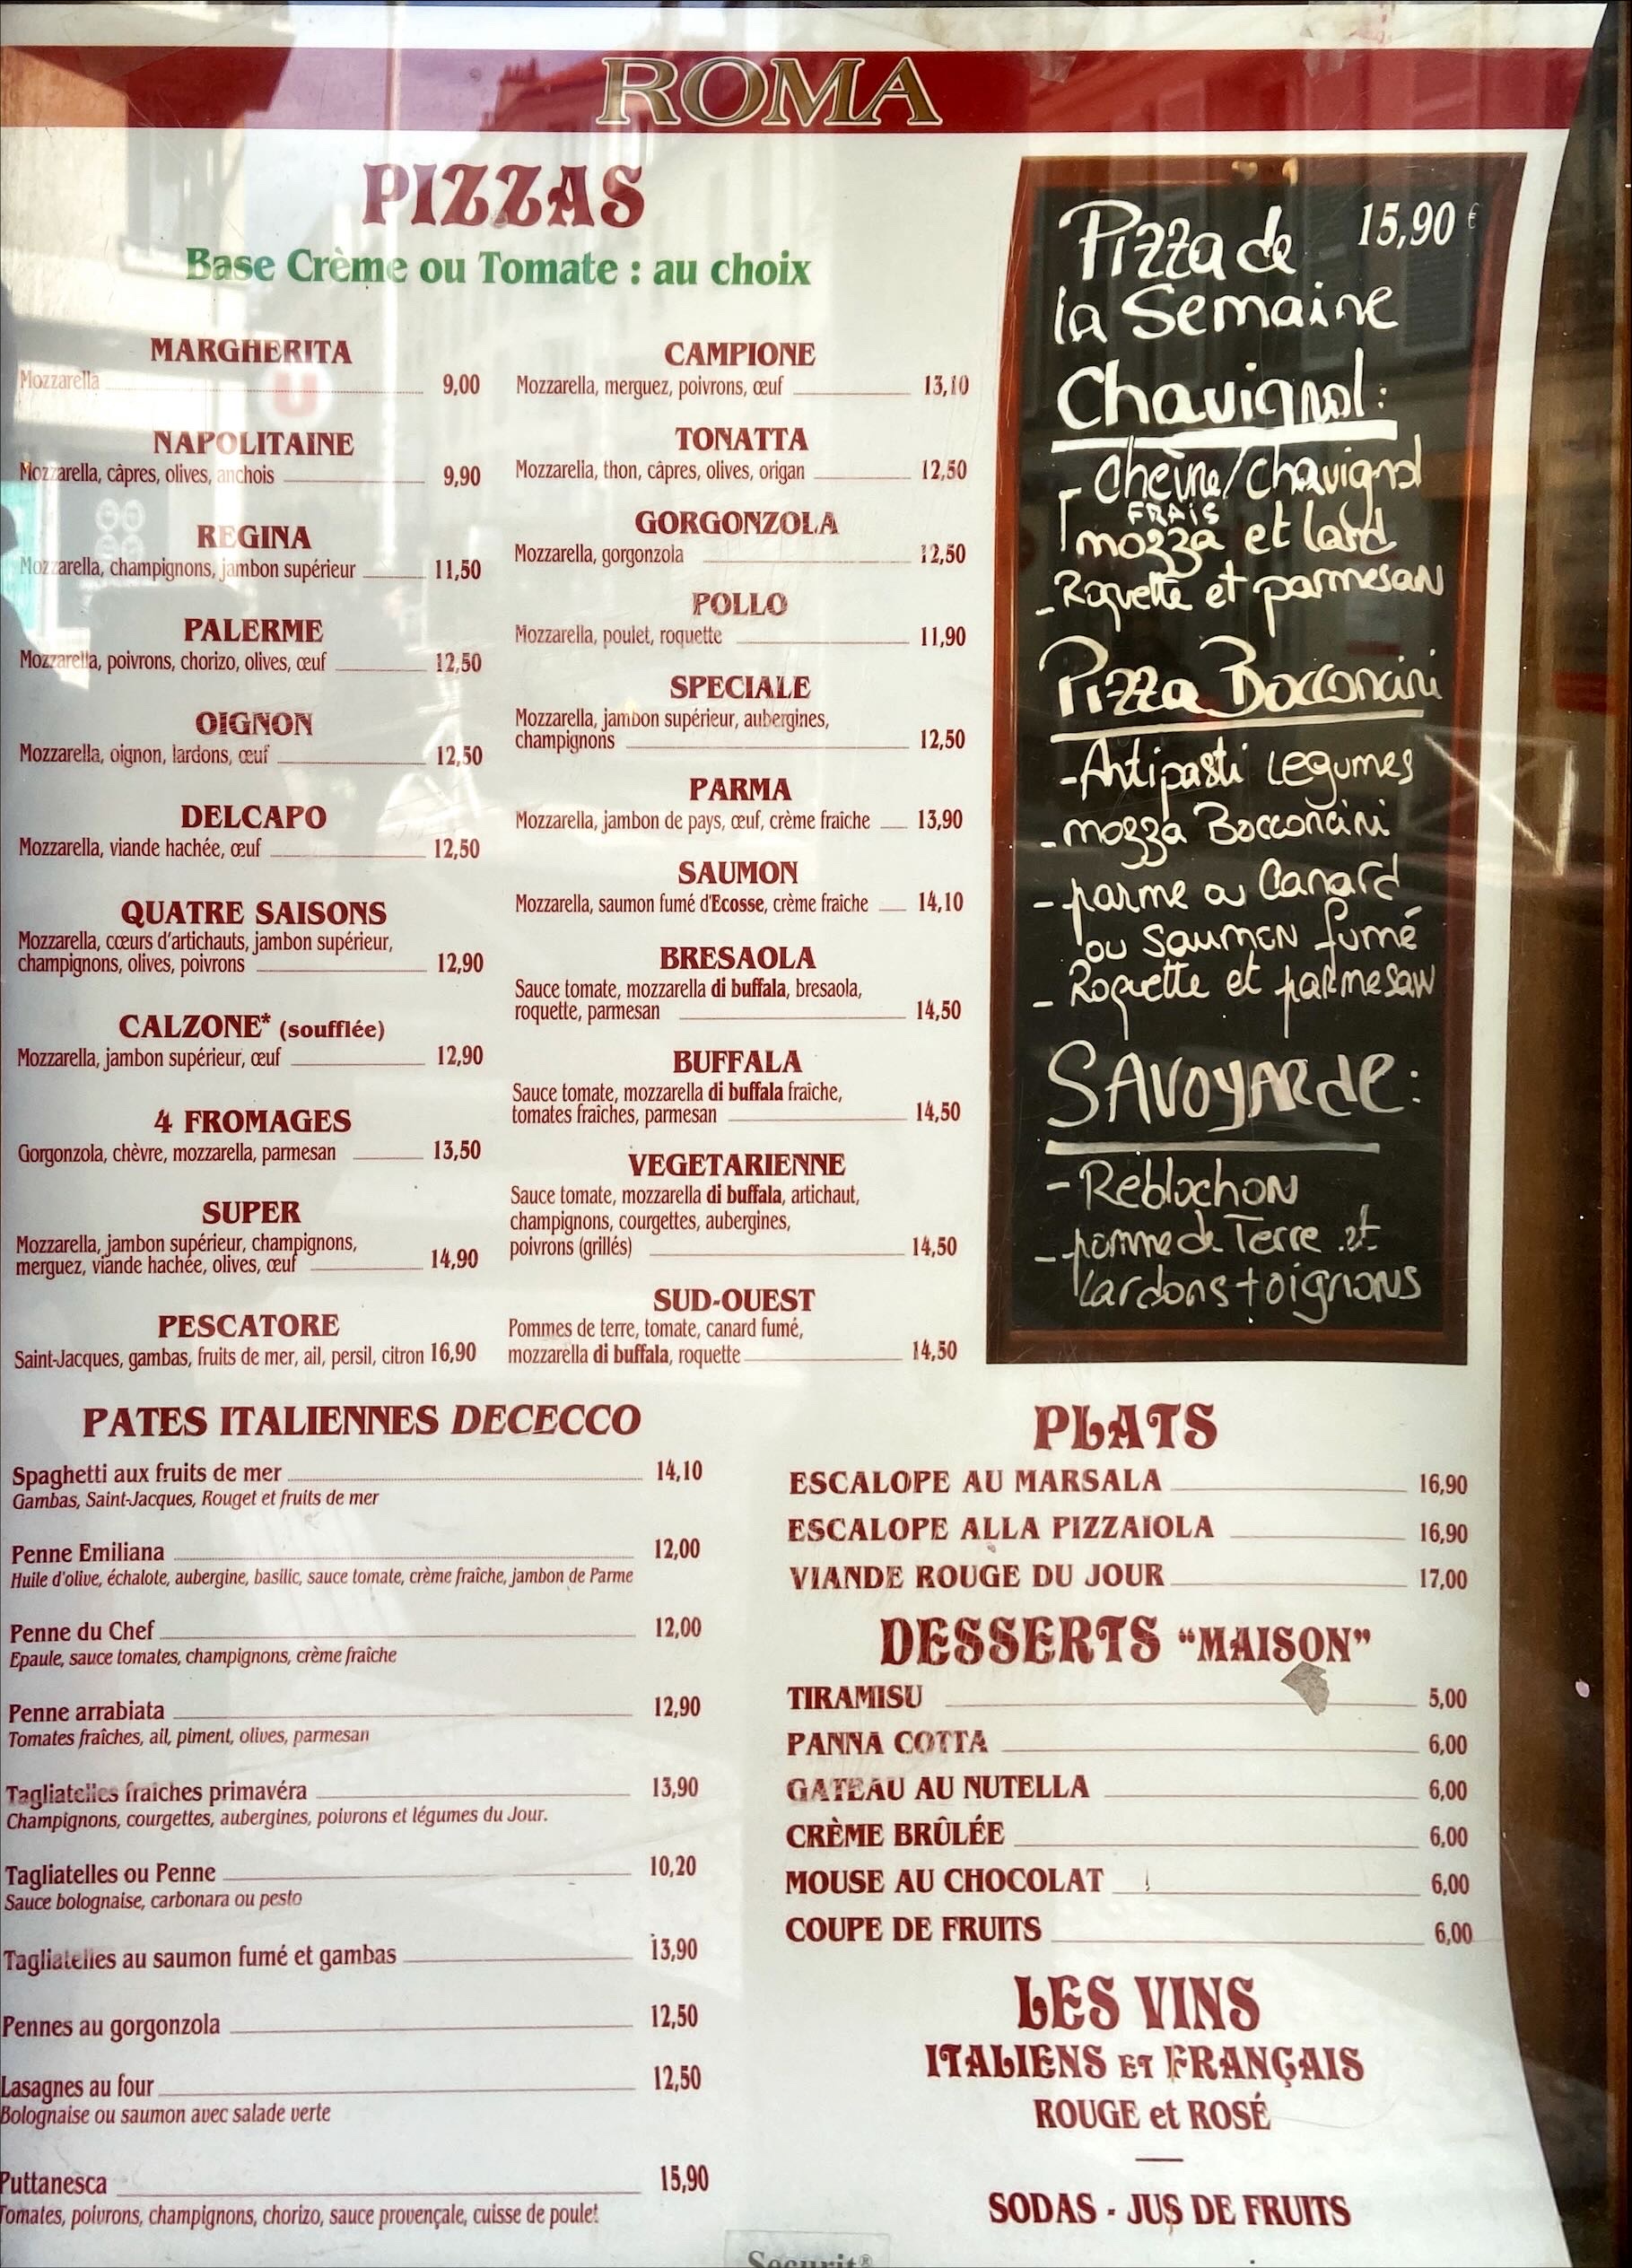 ROMA
PIZZAS
Base Crème ou Tomate : au choix
MARGHERITA
Mozzarella 9,00
NAPOLITAINE
Mozzarella, câpres, olives, anchois 9,90
REGINA
Mozzarella, champignons, jambon supérieur 11,50
PALERME
Mozzarella, poivrons, chorizo, olives, œuf 12,50
OIGNON
Mozzarella, oignon, lardons, œuf 12,50
DELCAPO
Mozzarella, viande hachée, œuf 12,50
QUATRE SAISONS
Mozzarella, cœurs d'artichauts, jambon supérieur,
champignons, olives, poivrons 12,90
CALZONE* (soufflée)
Mozzarella, jambon supérieur, œuf 12,90
4 FROMAGES
Gorgonzola, chèvre, mozzarella, parmesan 13,50
SUPER
Mozzarella, jambon supérieur, champignons,
merguez, viande hachée, olives, œuf 14,90
PESCATORE
Saint-Jacques, gambas, fruits de mer, ail, persil, citron 16,90
CAMPIONE
Mozzarella, merguez, poivrons, œuf 13,10
TONATTA
Mozzarella, thon, câpres, olives, origan 12,50
GORGONZOLA
Mozzarella, gorgonzola 12,50
POLLO
Mozzarella, poulet, roquette 11,90
SPECIALE
Mozzarella, jambon supérieur, aubergines,
champignons 12,50
PARMA
Mozzarella, jambon de pays, œuf, crème fraîche 13,90
SAUMON
Mozzarella, saumon fumé d'Ecosse, crème fraîche 14,10
BRESAOLA
Sauce tomate, mozzarella di buffala, bresaola,
roquette, parmesan 14,50
BUFFALA
Sauce tomate, mozzarella di buffala fraîche,
tomates fraîches, parmesan 14,50
VEGETARIENNE
Sauce tomate, mozzarella di buffala, artichaut,
champignons, courgettes, aubergines,
poivrons (grillés) 14,50
SUD-OUEST
Pommes de terre, tomate, canard fumé,
mozzarella di buffala, roquette 14,50
Pizza de 15,90 €
la Semaine
Chavignol :
- Chèvre/Chavignol
FRAIS
mozza et lard
- Roquette et parmesan
Pizza Bocconcini
- Antipasti Legumes
- mozza Bocconcini
- parme ou Canard
ou Saumon fumé
- Roquette et parmesan
SAVOYARde :
- Reblochon
- pomme de Terre et
lardons + oignons
PATES ITALIENNES DECECCO
Spaghetti aux fruits de mer 14,10
Gambas, Saint-Jacques, Rouget et fruits de mer
Penne Emiliana 12,00
Huile d'olive, échalote, aubergine, basilic, sauce tomate, crème fraîche, jambon de Parme
Penne du Chef 12,00
Epaule, sauce tomates, champignons, crème fraîche
Penne arrabiata 12,90
Tomates fraîches, ail, piment, olives, parmesan
Tagliatelles fraiches primavéra 13,90
Champignons, courgettes, aubergines, poivrons et légumes du Jour.
Tagliatelles ou Penne 10,20
Sauce bolognaise, carbonara ou pesto
Tagliatelles au saumon fumé et gambas 13,90
Pennes au gorgonzola 12,50
Lasagnes au four 12,50
Bolognaise ou saumon avec salade verte
Puttanesca 15,90
Tomates, poivrons, champignons, chorizo, sauce provençale, cuisse de poulet
PLATS
ESCALOPE AU MARSALA 16,90
ESCALOPE ALLA PIZZAIOLA 16,90
VIANDE ROUGE DU JOUR 17,00
DESSERTS "MAISON"
TIRAMISU 5,00
PANNA COTTA 6,00
GATEAU AU NUTELLA 6,00
CRÈME BRÛLÉE 6,00
MOUSE AU CHOCOLAT 6,00
COUPE DE FRUITS 6,00
LES VINS
ITALIENS ET FRANÇAIS
ROUGE et ROSÉ
SODAS - JUS DE FRUITS
Securit®